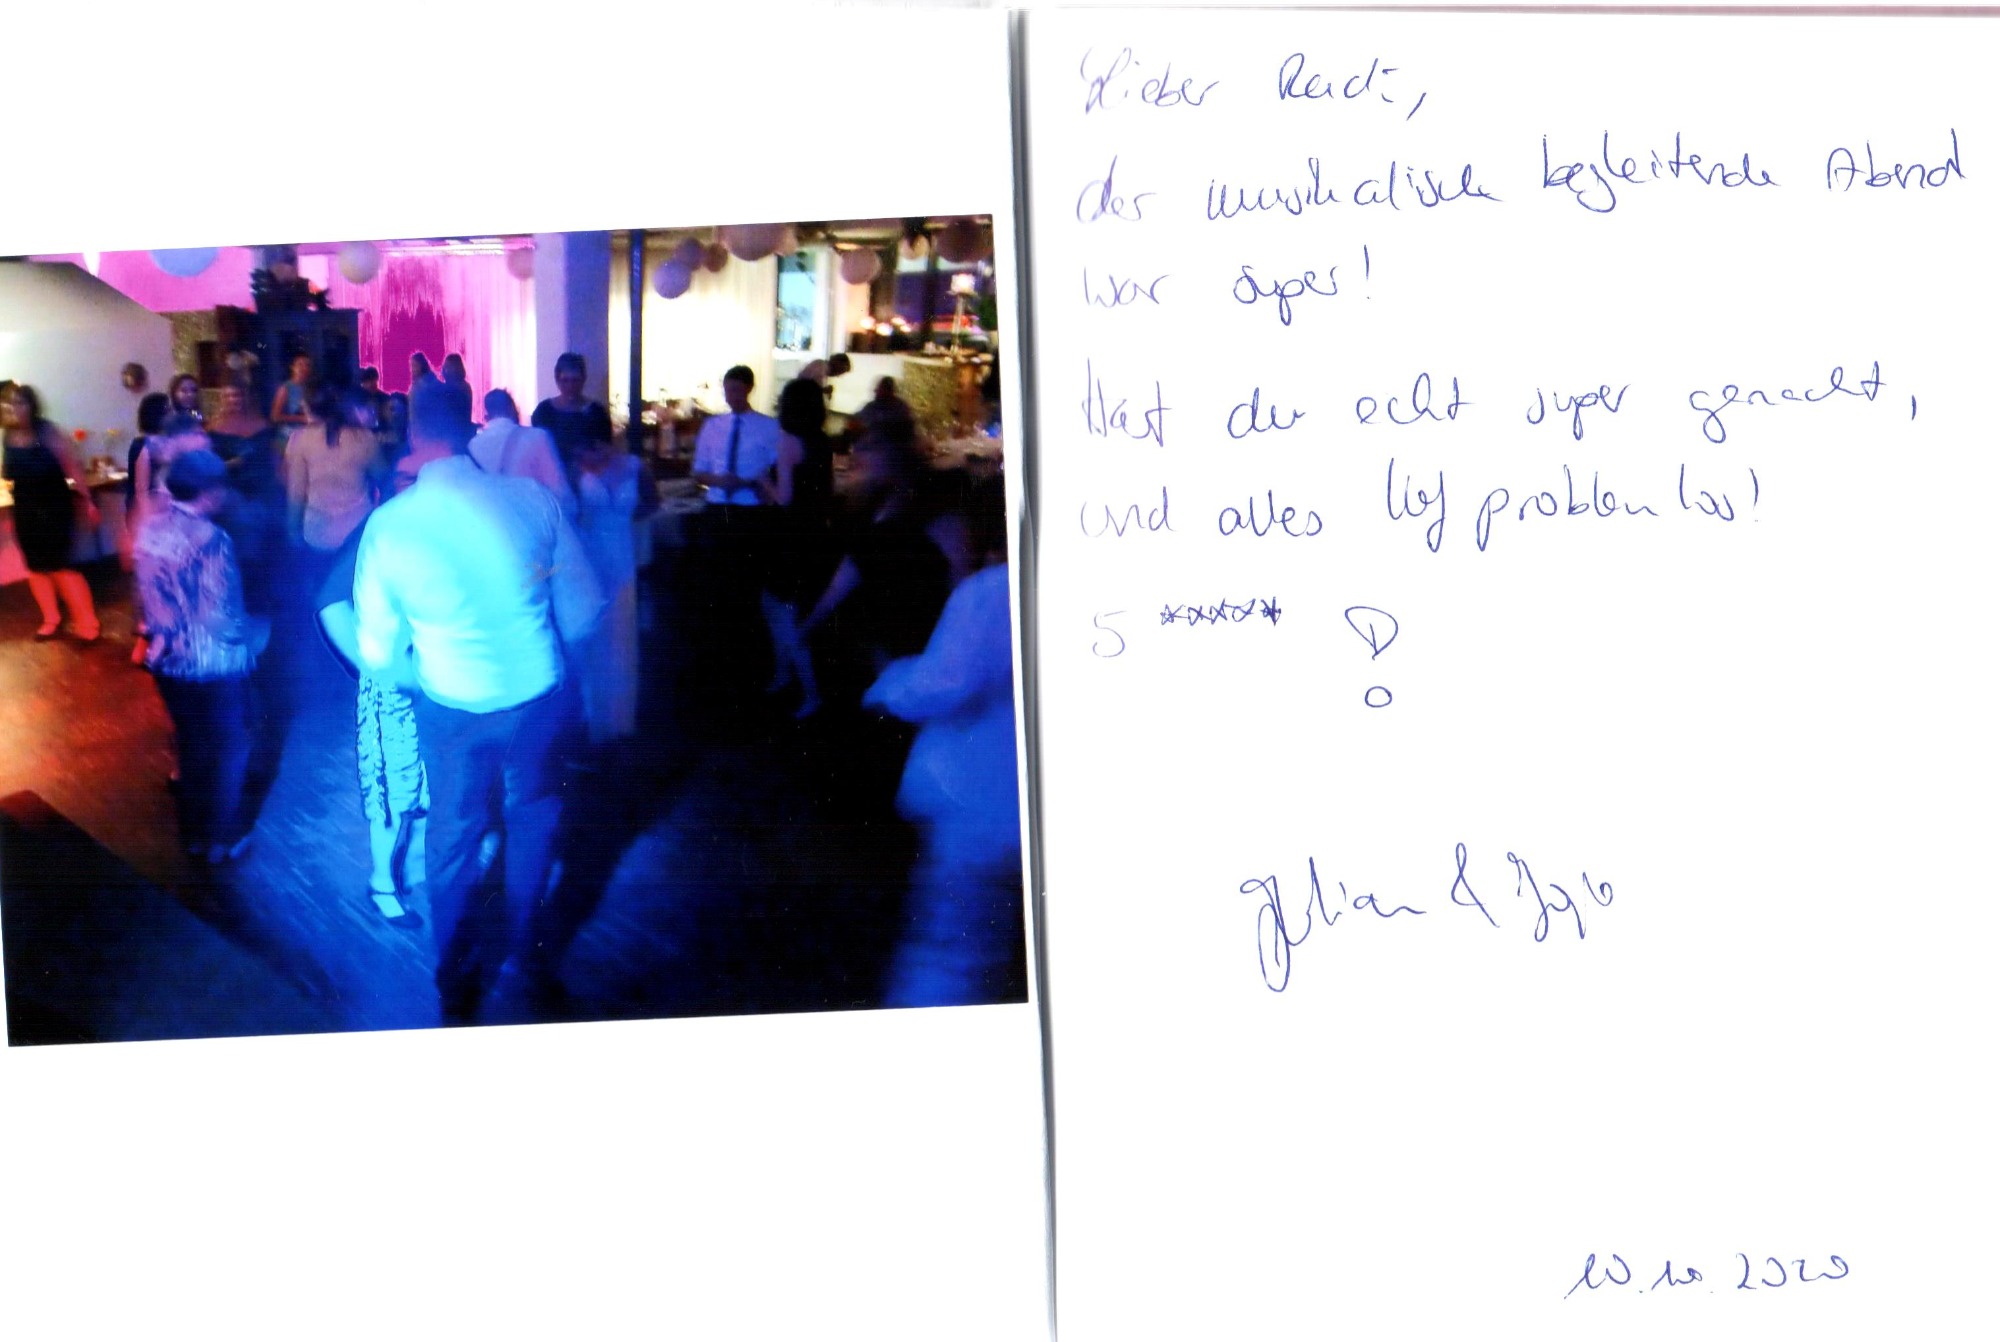 Lieber
der musikalische begleitende Abend
war super!
Hast du echt super gemacht,
und alles lief problemlos!
5 ***** !
Julian &
10.10.2020